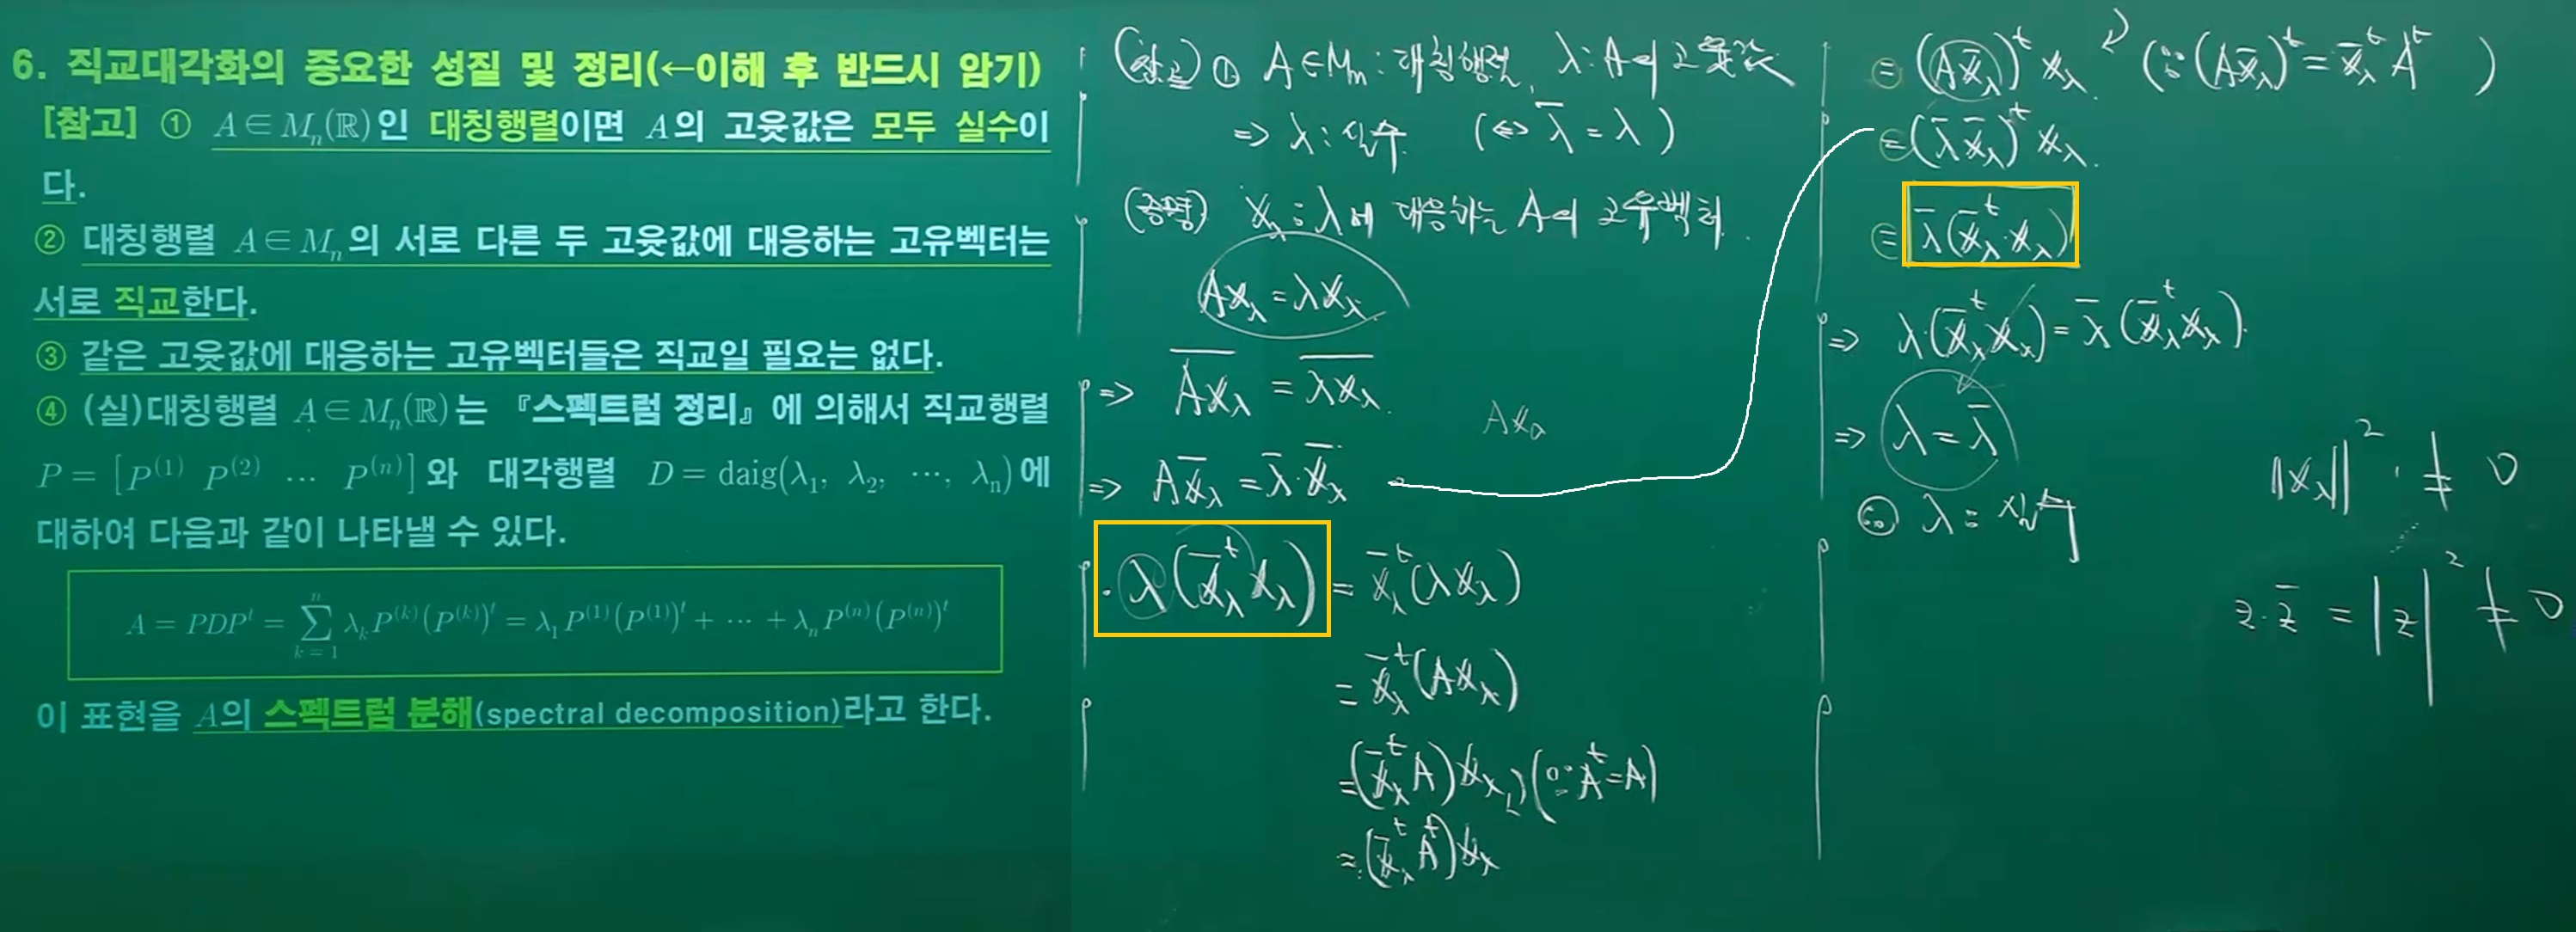 6. 직교대각화의 중요한 성질 및 정리(←이해 후 반드시 암기)
[참고] ① A∈Mₙ(ℝ)인 대칭행렬이면 A의 고윳값은 모두 실수이
다.
② 대칭행렬 A∈Mₙ의 서로 다른 두 고윳값에 대응하는 고유벡터는
서로 직교한다.
③ 같은 고윳값에 대응하는 고유벡터들은 직교일 필요는 없다.
④ (실)대칭행렬 A∈Mₙ(ℝ)는 『스펙트럼 정리』에 의해서 직교행렬
P = [P⁽¹⁾ P⁽²⁾ ⋯ P⁽ⁿ⁾]와 대각행렬 D = daig(λ₁, λ₂, ⋯, λₙ)에
대하여 다음과 같이 나타낼 수 있다.
A = PDPᵗ = ∑_{k=1}^{n} λₖP⁽ᵏ⁾(P⁽ᵏ⁾)ᵗ = λ₁P⁽¹⁾(P⁽¹⁾)ᵗ + ⋯ + λₙP⁽ⁿ⁾(P⁽ⁿ⁾)ᵗ
이 표현을 A의 스펙트럼 분해(spectral decomposition)라고 한다.
(참고) ① A∈Mₙ : 대칭행렬, λ : A의 고윳값
⇒ λ : 실수 (⇔ λ̄ = λ)
(증명) x_λ : λ에 대응하는 A의 고유벡터.
Ax_λ = λx_λ
⇒ \overline{Ax_λ} = \overline{λx_λ}.
⇒ Ax̄_λ = λ̄·x̄_λ
· λ(x̄_λᵗ x_λ) = x̄_λᵗ(λx_λ)
= x̄_λᵗ(Ax_λ)
= (x̄_λᵗ A)x_λ (∵ Aᵗ = A)
= (x̄_λᵗ Aᵗ)x_λ
= (Ax̄_λ)ᵗ x_λ (∵ (Ax̄_λ)ᵗ = x̄_λᵗ Aᵗ)
= (λ̄ x̄_λ)ᵗ x_λ.
= λ̄(x̄_λᵗ·x_λ)
⇒ λ·(x̄_λᵗ x_λ) = λ̄(x̄_λᵗ x_λ).
⇒ λ = λ̄
∴ λ : 실수
‖x_λ‖² ≠ 0
z·z̄ = |z|² ≠ 0